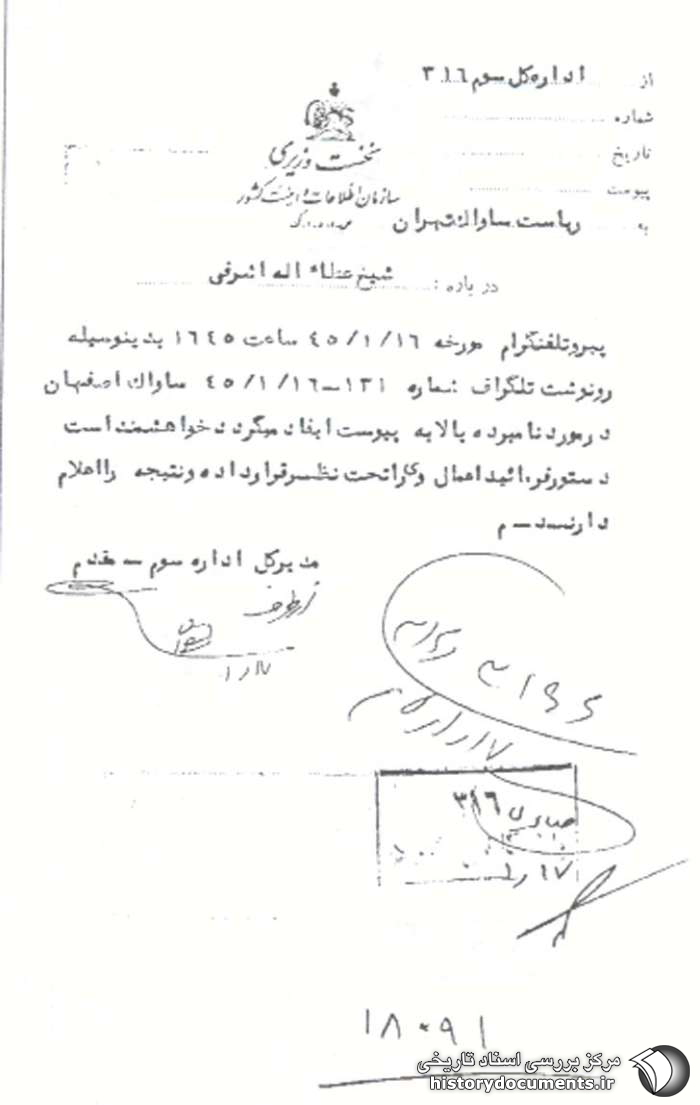 از اداره کل سوم ۳۱۶
شماره
تاریخ
پیوست
نخست وزیری
سازمان اطلاعات و امنیت کشور
به ریاست ساواک تهران
درباره : شیخ عطاء اله اشرفی
پیرو تلفنگرام مورخه ۴۵/۱/۱۶ ساعت ۱۶۴۵ بدینوسیله
رونوشت تلگراف شماره ۱۳۱-۴۵/۱/۱۶ ساواک اصفهان
در مورد نامبرده بالا به پیوست ایفاد میگردد خواهشمند است
دستور فرمائید اعمال وی را تحت نظر قرار داده و نتیجه را اعلام
دارند - م
مدیرکل اداره سوم - مقدم
از طرف
۱۷ر۱
۳۱۶
۱۷ر۱
۱۸۰۹۱
مرکز بررسی اسناد تاریخی
historydocuments.ir